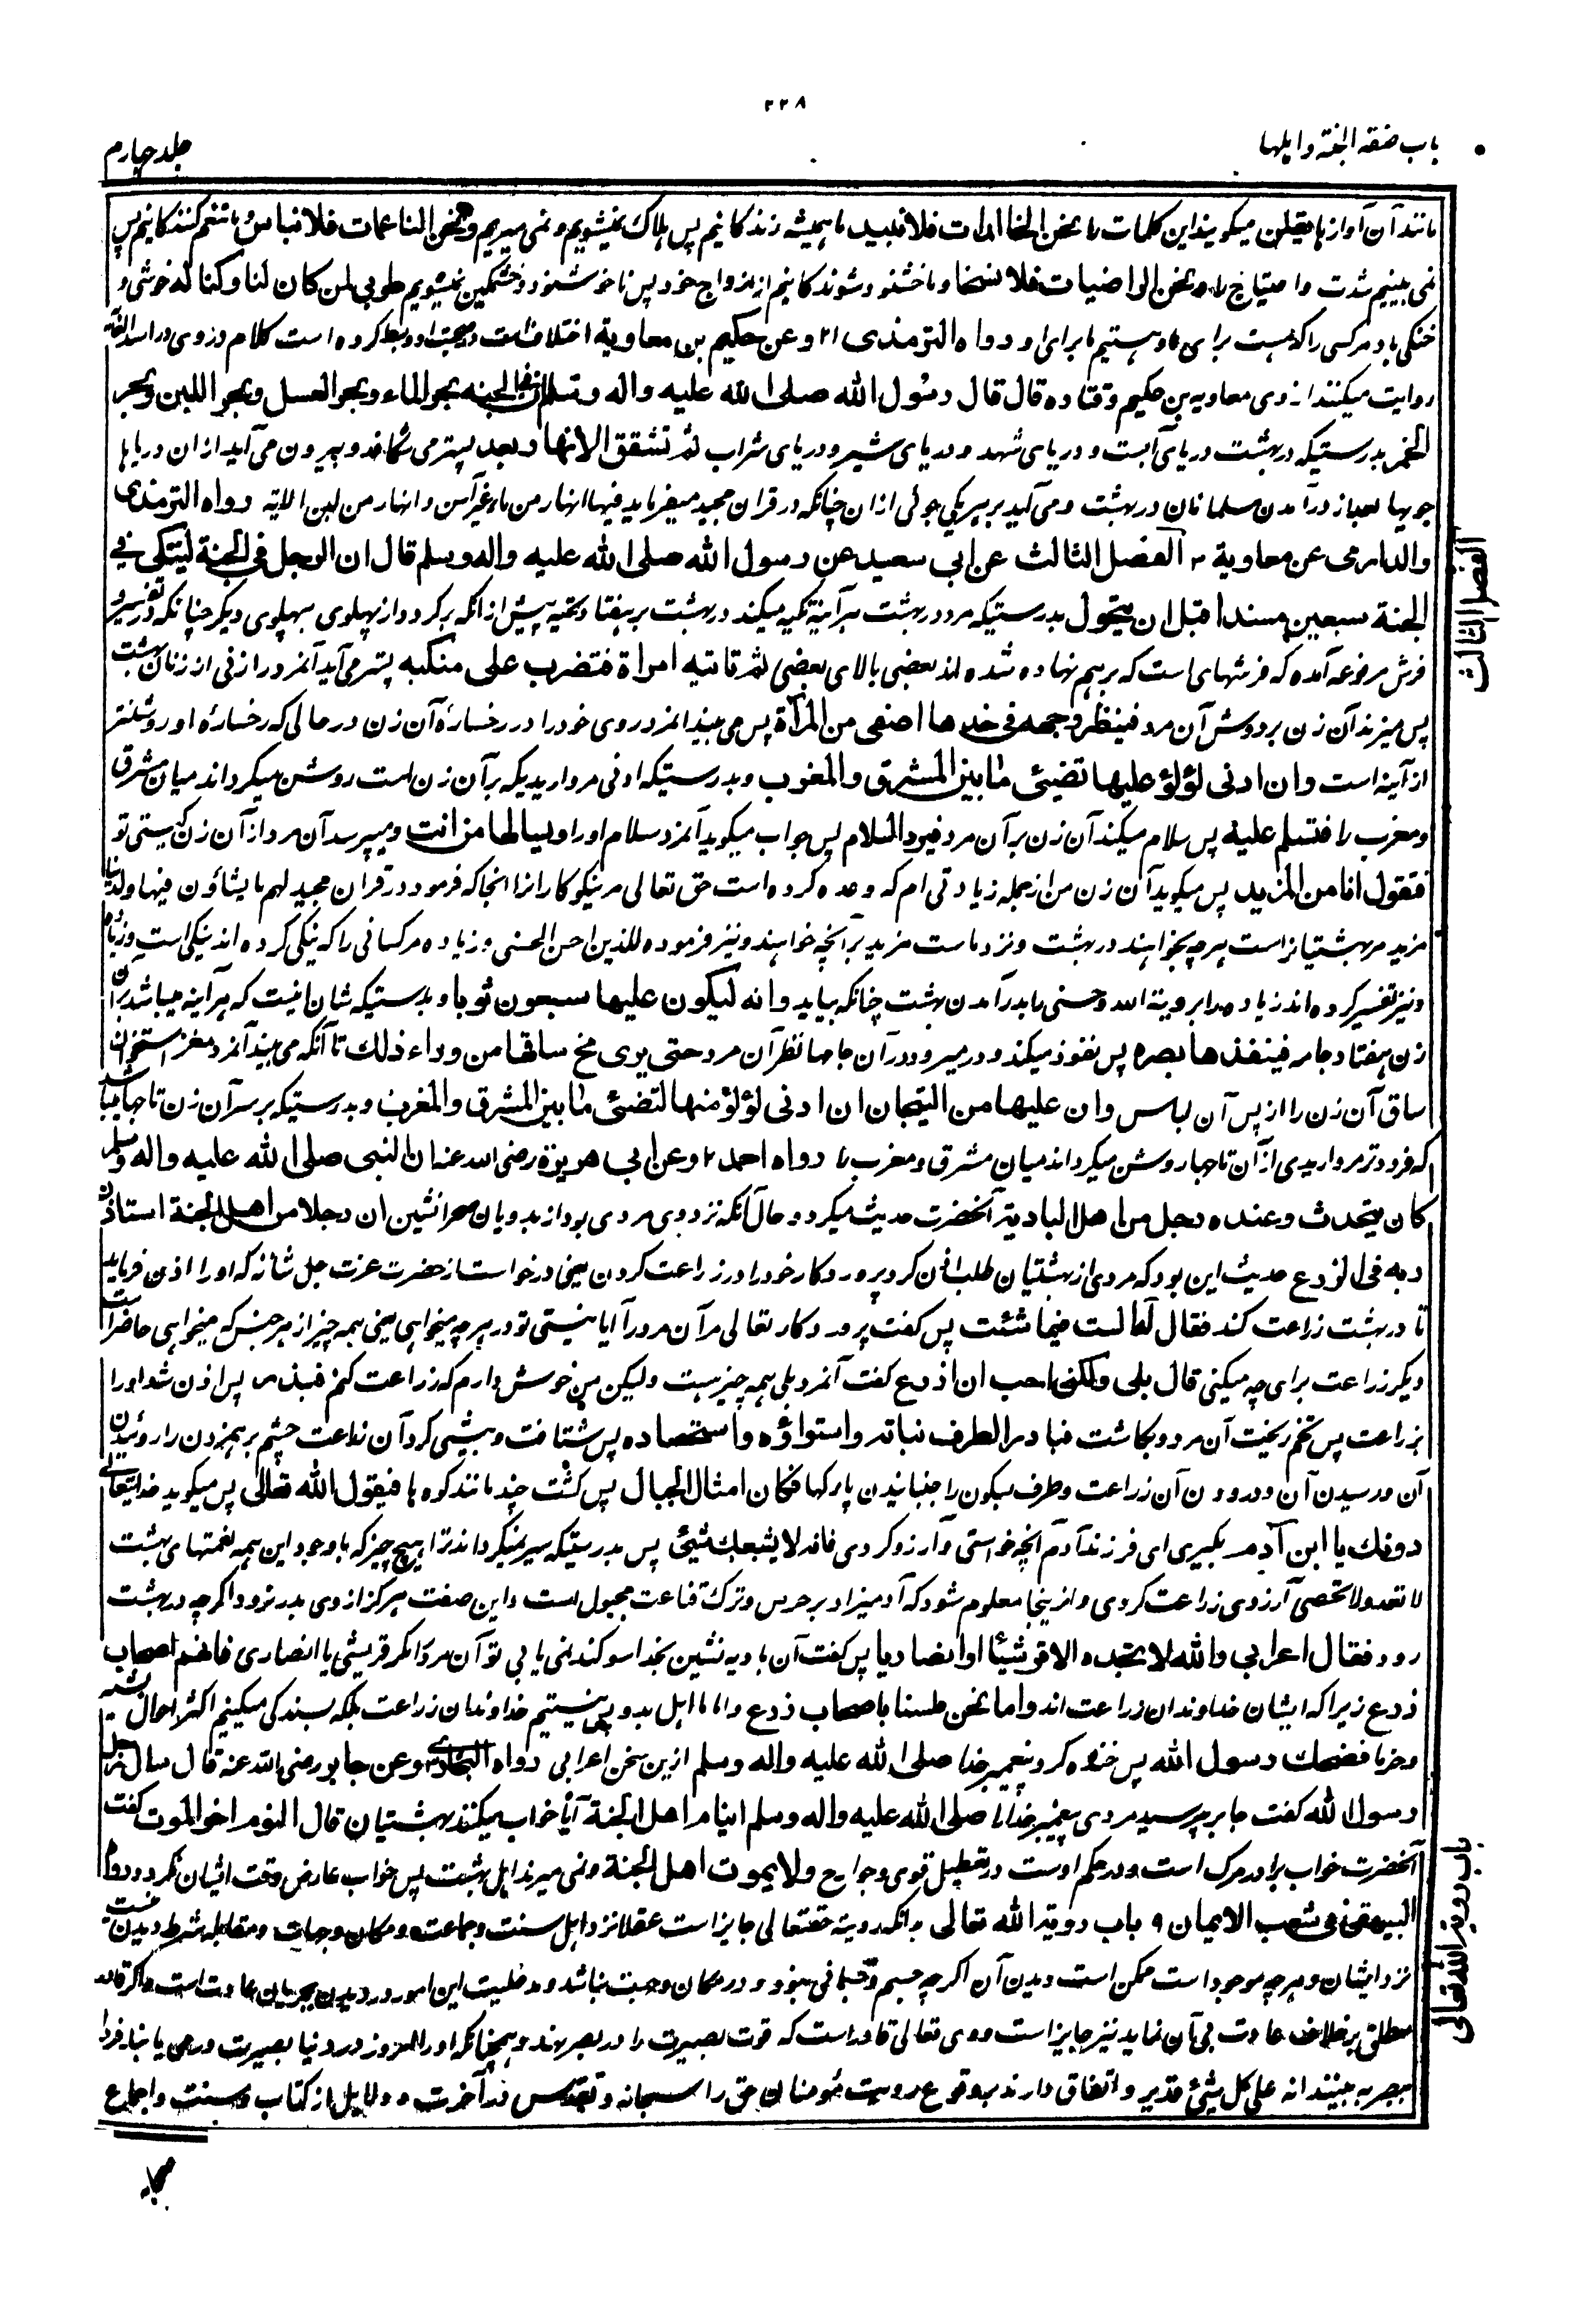 ۴۲۸
باب صفة الجنة و اهلها
جلد چهارم
مانند آن آوازها یقلن میگویند این کلمات را نحن الخالدات فلا نبید ما همیشه زنده‌گانیم پس هلاک نمیشویم و نمی میریم و نحن الناعمات فلا نباس و ما تنعم کنندگانیم پس
نمی بینیم شدت و احتیاج را و نحن الراضیات فلا نسخط و ما خشنود شوندگانیم از ازواج خود پس ناخوشنود و خشمگین نمیشویم طوبی لمن کان لنا و کنا له خوشی و
خنکی باد مر کسی را که هست برای ما و هستیم ما برای او رواه الترمذی ۱۲ و عن حکیم بن معاویة اختلاف است در صحبت او و بسط کرده است کلام در وی در اسد الغابه
روایت میکنند از وی معاویه بن حکیم و قتاده قال قال رسول الله صلی الله علیه واله وسلم ان فی الجنة بحر الماء و بحر العسل و بحر اللبن و بحر
الخمر بدرستیکه در بهشت دریای آبست و دریای شهد و دریای شیر و دریای شراب ثم تشقق الانهار بعد پستر می شگافد و بیرون می آید از ان دریاها
جویها بعد از درآمدن مسلمانان در بهشت و می آید بر هر یکی جوئی از ان چنانکه در قران مجید میفرماید فیها انهار من ماء غیر آسن و انهار من لبن الایه رواه الترمذی
والدارمی عن معاویة ۳ الفصل الثالث عن ابی سعید عن رسول الله صلی الله علیه واله وسلم قال ان الرجل فی الجنة لیتکی فی
الجنة سبعین مسندا قبل ان یتحول بدرستیکه مرد در بهشت هرآینه تکیه میکند در بهشت بر هفتاد تکیه پیش از انکه برگردد از پهلوی بپهلوی دیگر چنانکه در تفسیر و
فرش مرفوعه آمده که فرشهای است که بر هم نهاده شده اند بعضی بالای بعضی ثم تاتیه امراة فتضرب علی منکبه پستر می آید آنمرد را زنی از زنان بهشت
پس میزند آن زن بر دوش آن مرد فینظر وجهه فی خدها اصفی من المرآة پس می بیند آنمرد روی خود را در رخسارهٔ آن زن در حالی که رخسارهٔ او روشنتر
از آینه است و ان ادنی لؤلؤ علیها تضیئ ما بین المشرق والمغرب و بدرستیکه ادنی مرواریدیکه بر آن زن است روشن میگرداند میان مشرق
و مغرب را فتسلم علیه پس سلام میکند آن زن بر آن مرد فیرد السلام پس جواب میگوید آنمرد سلام او را و یسالها من انت و میپرسد آن مرد از آن زن که کیستی تو
فتقول انا من المزید پس میگوید آن زن من از جمله زیادتی ام که وعده کرده است حق تعالی مر نیکوکارانرا انجا که فرموده در قران مجید لهم ما یشاؤن فیها ولدینا
مزید مر بهشتیانراست هر چه بخواهند در بهشت و نزد ماست مزید بر آنچه خواهند و نیز فرموده للذین احسنوا الحسنی و زیاده مر کسانی را که نیکی کرده اند نیکی است و زیاده
و نیز تفسیر کرده اند زیاده را برویة الله و حسنی را بدرآمدن بهشت چنانکه بیاید وانه لیکون علیها سبعون ثوبا و بدرستیکه شان اینست که هرآینه میباشد بر آن
زن هفتاد جامه فینفذها بصره پس نفوذ میکند و در میرود در آن جامها نظر آن مرد حتی یری مخ ساقها من وراء ذلک تا آنکه می بیند آنمرد مغز استخوان
ساق آن زن را از پس آن لباس و ان علیها من التیجان ان ادنی لؤلؤ منها لتضئ ما بین المشرق والمغرب و بدرستیکه بر سر آن زن تاجها میباشد
که فرودتر مرواریدی از آن تاجها روشن میگرداند میان مشرق و مغرب را رواه احمد ۲ و عن ابی هریرة رضی الله عنه ان النبی صلی الله علیه واله وسلم
کان یتحدث و عنده رجل من اهل البادیة آنحضرت حدیث میکرد و حال آنکه نزد وی مردی بود از بدویان صحرانشین ان رجلا من اهل الجنة استاذن
ربه فی الزرع حدیث این بود که مردی از بهشتیان طلب اذن کرد پروردگار خود را در زراعت کردن یعنی درخواست از حضرت عزت جل شانه که او را اذن فرماید
تا در بهشت زراعت کند فقال له الست فیما شئت پس گفت پروردگار تعالی مر آن مرد را آیا نیستی تو در هر چه میخواهی یعنی همه چیز از هر جنس که میخواهی حاضر است
دیگر زراعت برای چه میکنی قال بلی ولکنی احب ان ازرع گفت آنمرد بلی همه چیز هست ولیکن من خوش دارم که زراعت کنم فبذر پس اذن شد او را
بزراعت پس تخم ریخت آن مرد و بکاشت فبادر الطرف نباته واستواؤه واستحصاده پس شتافت و پیشی کرد آن زراعت چشم برهمزدن را روئیدن
آن و رسیدن آن و درودن آن زراعت و طرف بسکون را جنبانیدن پلکها فکان امثال الجبال پس گشت چند مانند کوه ها فیقول الله تعالی پس میگوید خدایتعالی
دونک یا ابن آدم بگیر ای فرزند آدم انچه خواستی و آرزو کردی فانه لا یشبعک شیئ پس بدرستیکه سیر نمیگرداند ترا هیچ چیز که با وجود این همه نعمتهای بهشت
لا تعد ولا تحصی آرزوی زراعت کردی و ازینجا معلوم شود که آدمیزاد بر حرص و ترک قناعت مجبول است و این صفت هرگز از وی بدر نرود اگر چه در بهشت
رود فقال اعرابی والله لا تجده الا قرشیًا او انصاریا پس گفت آن بادیه نشین بخدا سوگند نمی یابی تو آن مرد را مگر قریشی یا انصاری فانهم اصحاب
زرع زیرا که ایشان خداوندان زراعت اند واما نحن فلسنا باصحاب زرع و اما ما اهل بدو پس نیستیم خداوندان زراعت بلکه بسندگی میکنیم اکثر احوال بشیر
و خرما فضحک رسول الله پس خنده کرد پیغمبر خدا صلی الله علیه واله وسلم ازین سخن اعرابی رواه البخاری ۳ و عن جابر رضی الله عنه قال سال رجل
رسول الله گفت جابر پرسید مردی پیغمبر خدا را صلی الله علیه واله وسلم اینام اهل الجنة آیا خواب میکنند بهشتیان قال النوم اخو الموت گفت
آنحضرت خواب برادر مرگ است و در حکم اوست در تعطیل قوی و جوارح ولا یموت اهل الجنة و نمی میرند اهل بهشت پس خواب عارض وقت ایشان نگردد رواه
البیهقی فی شعب الایمان ۹ باب رویة الله تعالی بدانکه رویة حقتعالی جایز است عقلا نزد اهل سنت و جماعت و مکان و جهات و مقابله شرط دیدن نیست
نزد ایشان و هر چه موجود است ممکن است دیدن آن اگر چه جسم و جسمانی نبود و در مکان و جهت نباشد و مدخلیت این امور در دیدن بجریان عادت است و اگر قادر
مطلق بر خلاف عادت بی آن نماید نیز جایز است و وی تعالی قادر است که قوت بصیرت را در بصر نهد و همچنانکه او را امروز در دنیا ببصیرت درمی یابند فردا
ببصر به بینند انه علی کل شیئ قدیر و اتفاق دارند بوقوع رویت مؤمنان حق را سبحانه و تقدس در آخرت و دلایل از کتاب و سنت و اجماع
الفصل الثالث
باب رویة الله تعالی